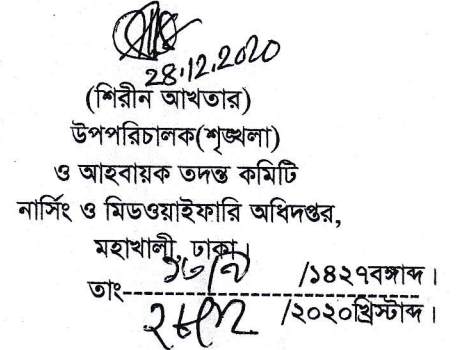 28.12.2020
(শিরীন আখতার)
উপপরিচালক(শৃঙ্খলা)
ও আহবায়ক তদন্ত কমিটি
নার্সিং ও মিডওয়াইফারি অধিদপ্তর,
মহাখালী, ঢাকা।
তাং- /১৪২৭বঙ্গাব্দ।
/২০২০খ্রিস্টাব্দ।